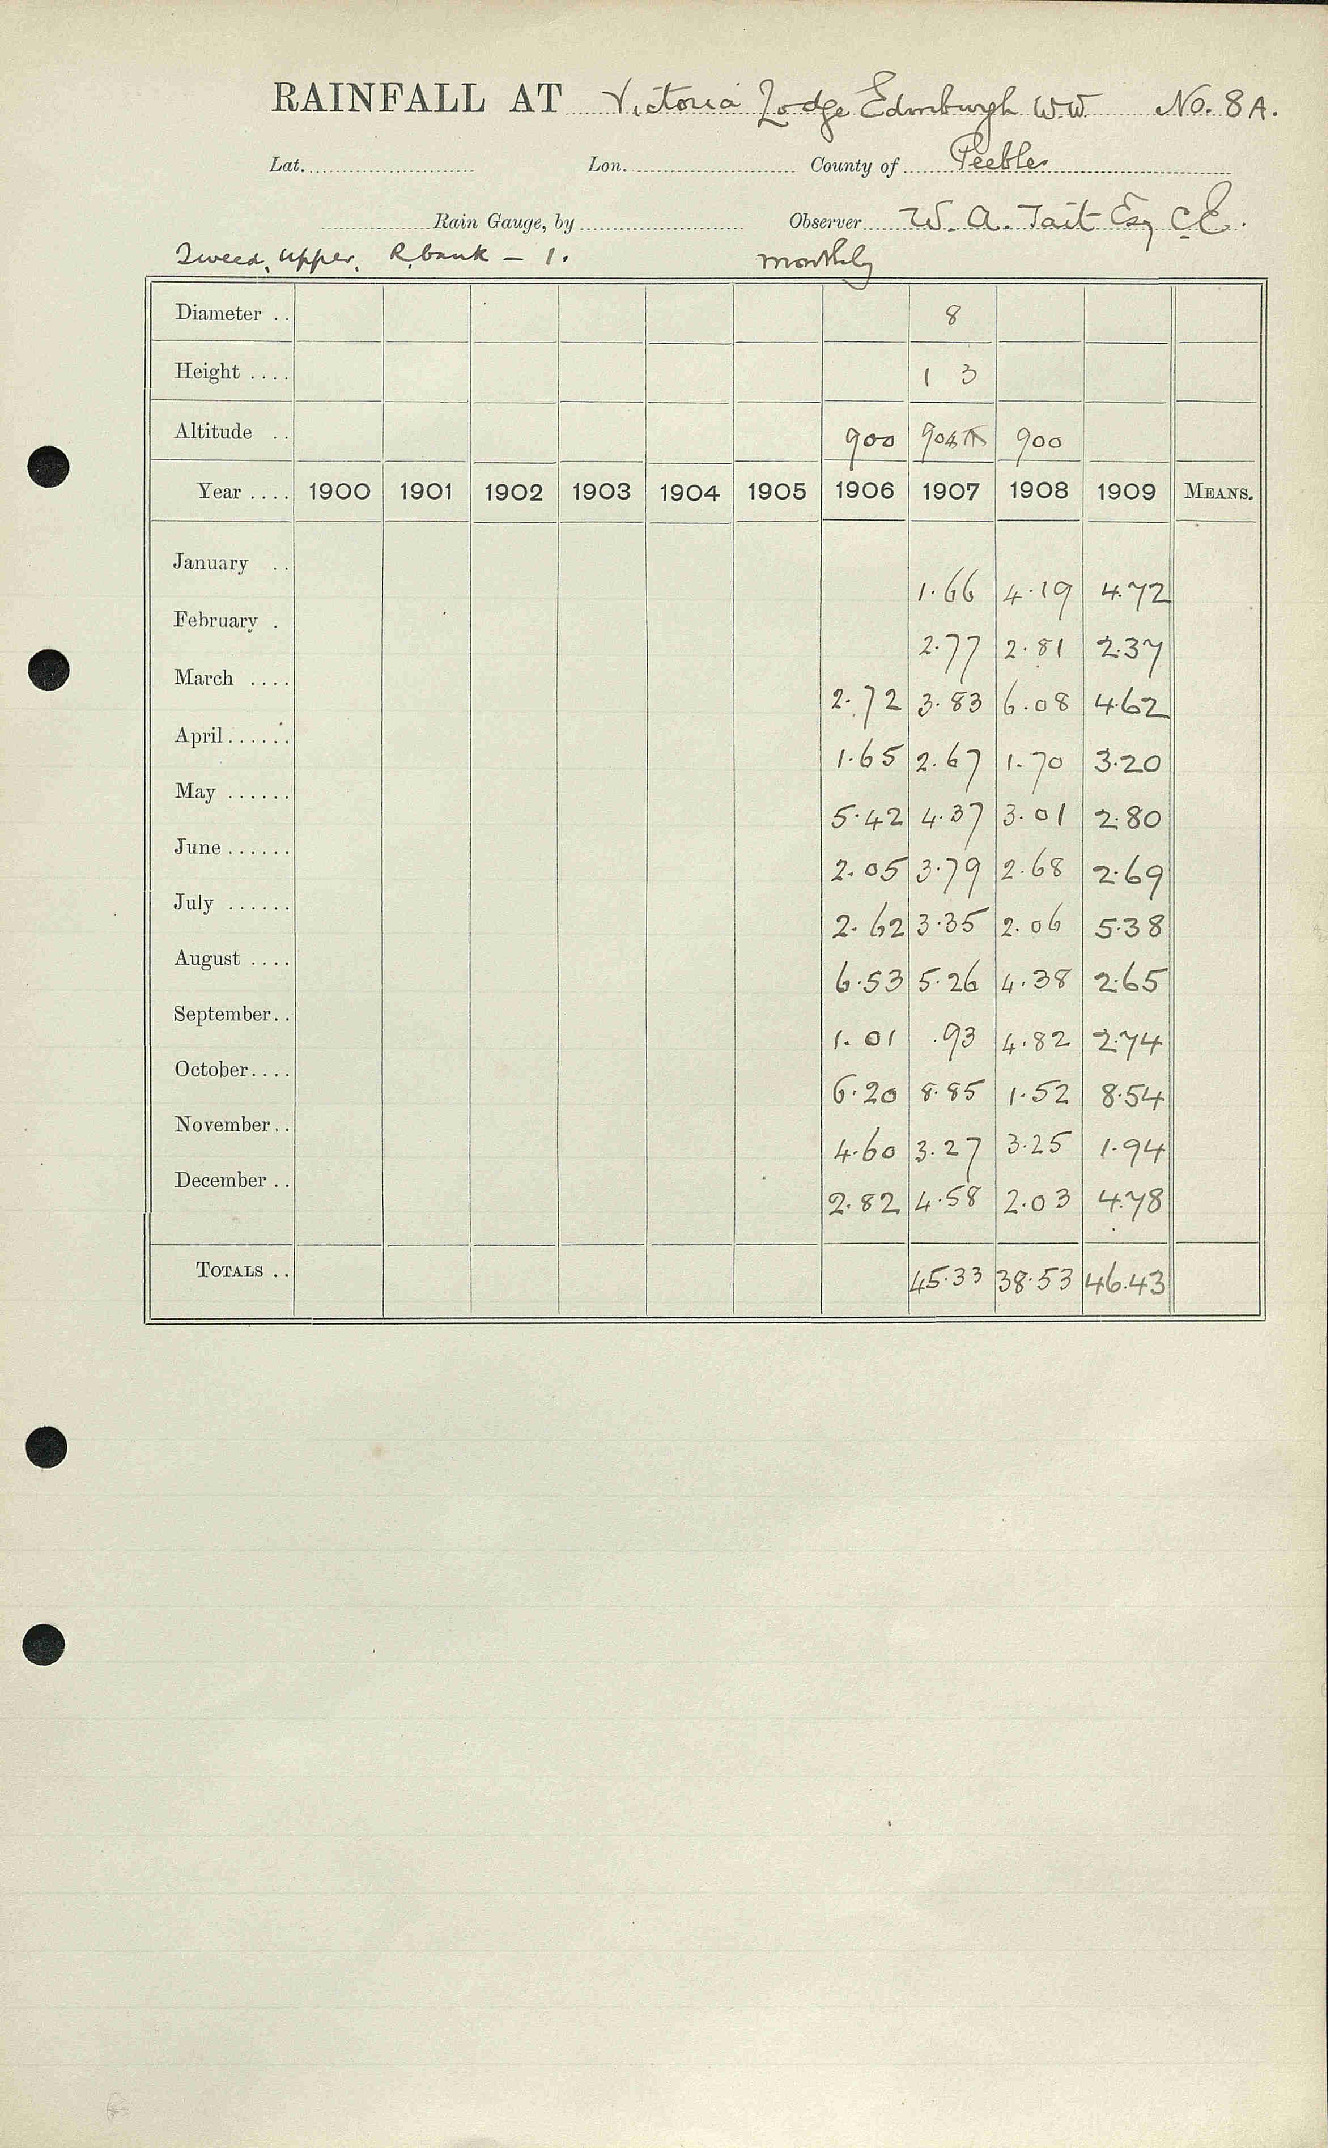 RAINFALL AT Victoria Lodge Edinburgh W.W. No. 8A.
Lat. Lon. County of Peebles
Rain Gauge, by Observer W. A. Tait Esq C.E.
Tweed, upper, R. bank – 1. monthly
Diameter .. 8
Height .... 1 3
Altitude .. 900 900
Year .... 1900 1901 1902 1903 1904 1905 1906 1907 1908 1909 MEANS.
January .. 1.66 4.19 4.72
February . 2.77 2.81 2.37
March .... 2.72 3.83 6.08 4.62
April...... 1.65 2.67 1.70 3.20
May ...... 5.42 4.37 3.01 2.80
June ...... 2.05 3.79 2.68 2.69
July ...... 2.62 3.35 2.06 5.38
August .... 6.53 5.26 4.38 2.65
September.. 1.01 .93 4.82 2.74
October.... 6.20 8.85 1.52 8.54
November.. 4.60 3.27 3.25 1.94
December .. 2.82 4.58 2.03 4.78
TOTALS .. 45.33 38.53 46.43